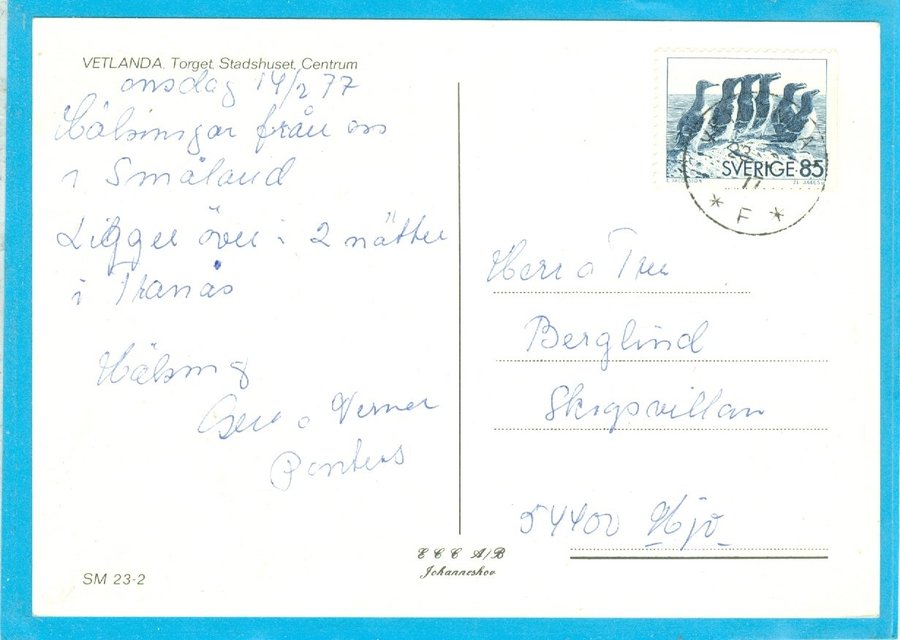 VETLANDA. Torget, Stadshuset, Centrum
onsdag 14/2 77
Hälsningar från oss
i Småland
Ligger över i 2 nätter
i Tranås
Hälsning
o Verner
SM 23-2
ECC A/B
Johanneshov
SVERIGE 85
F
Herr o Fru
Berglind
Skogsvillan
54400 Hjo